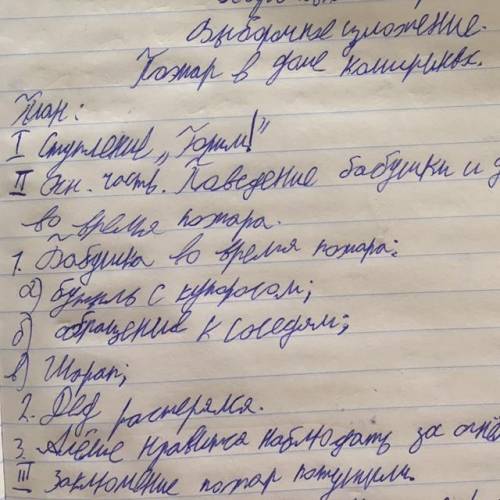 Выборочное изложение.
Пожар в доме Кашириных.
План:
I Ступление „Горим!"
II Осн. часть. Поведение бабушки и д
во время пожара.
1. Бабушка во время пожара:
а) бутыль с купоросом;
б) обращение к соседям;
в) Шарап;
2. Дед растерялся.
3. Алёше нравится наблюдать за огнё
III Заключение пожар потушили.